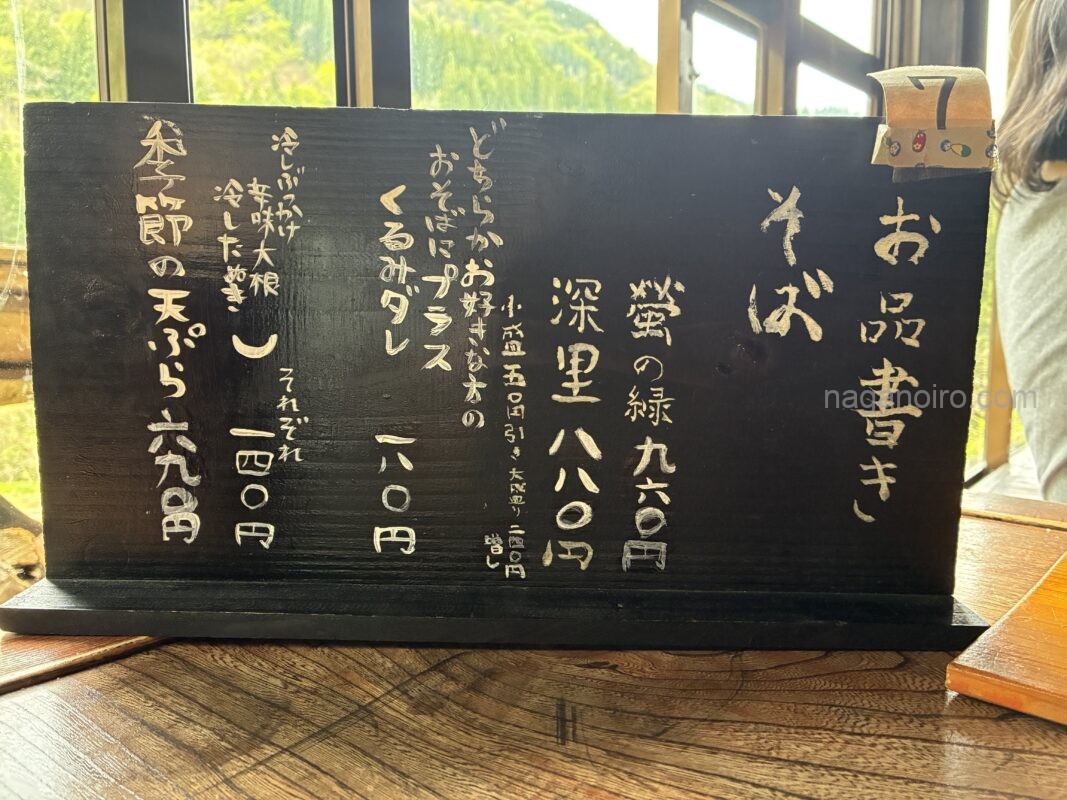 7
お品書き
そば
螢の緑 九六〇円
深里 八八〇円
小盛五〇円引き 大盛り二四〇円増し
どちらかお好きな方の
おそばにプラス
くるみダレ 一八〇円
冷しぶっかけ
辛味大根
冷したぬき
それぞれ
一四〇円
季節の天ぷら 六九〇円
naganoiro.com